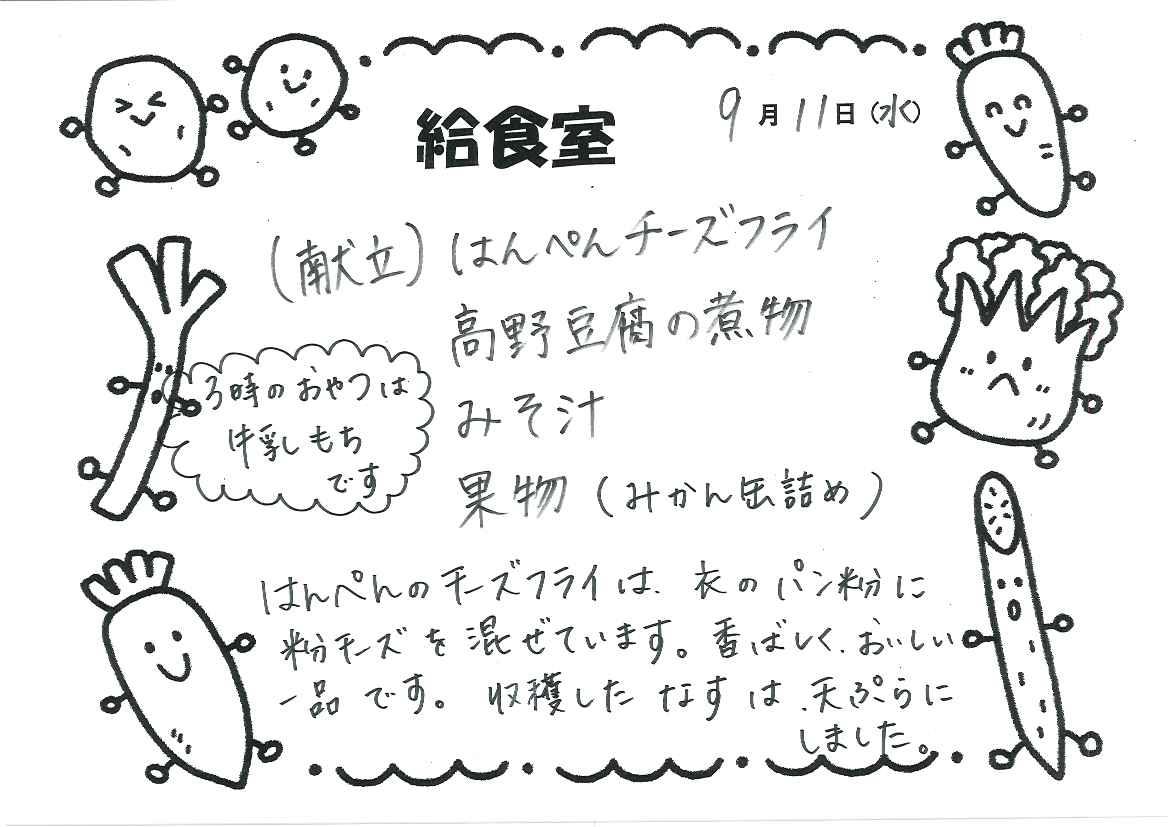 給食室
9月11日(水)
(献立)はんぺんチーズフライ
高野豆腐の煮物
みそ汁
果物(みかん缶詰め)
3時のおやつは
牛乳もち
です
はんぺんのチーズフライは、衣のパン粉に
粉チーズを混ぜています。香ばしく、おいしい
一品です。収穫したなすは、天ぷらに
しました。